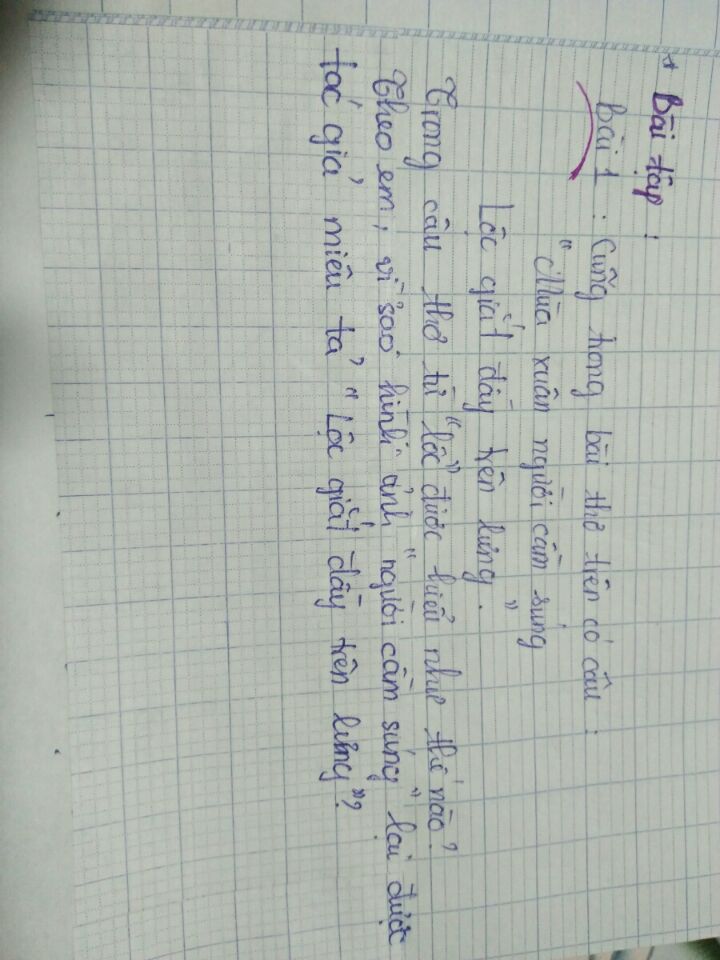 * Bài tập:
Bài 1: Cũng trong bài thơ trên có câu:
"Mùa xuân người cầm súng
Lộc giắt đầy trên lưng."
Trong câu thơ từ "lộc" được hiểu như thế nào?
Theo em, vì sao hình ảnh "người cầm súng" lại được
tác giả miêu tả "Lộc giắt đầy trên lưng"?